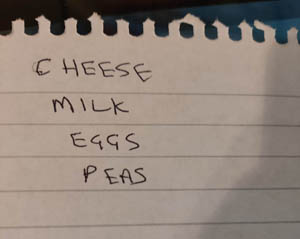 CHEESE
MILK
EGGS
PEAS